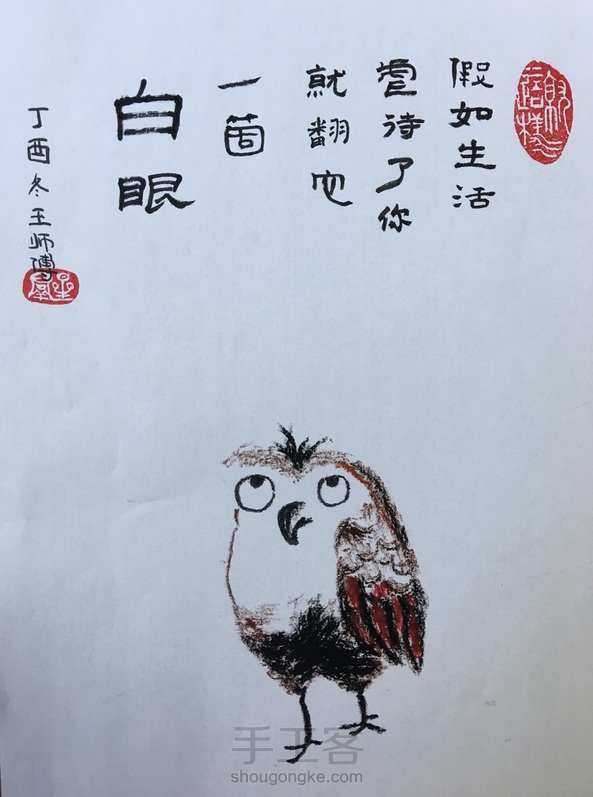 假如生活
虐待了你
就翻它
一箇
白眼
丁酉冬王师傅
手工客
shougongke.com